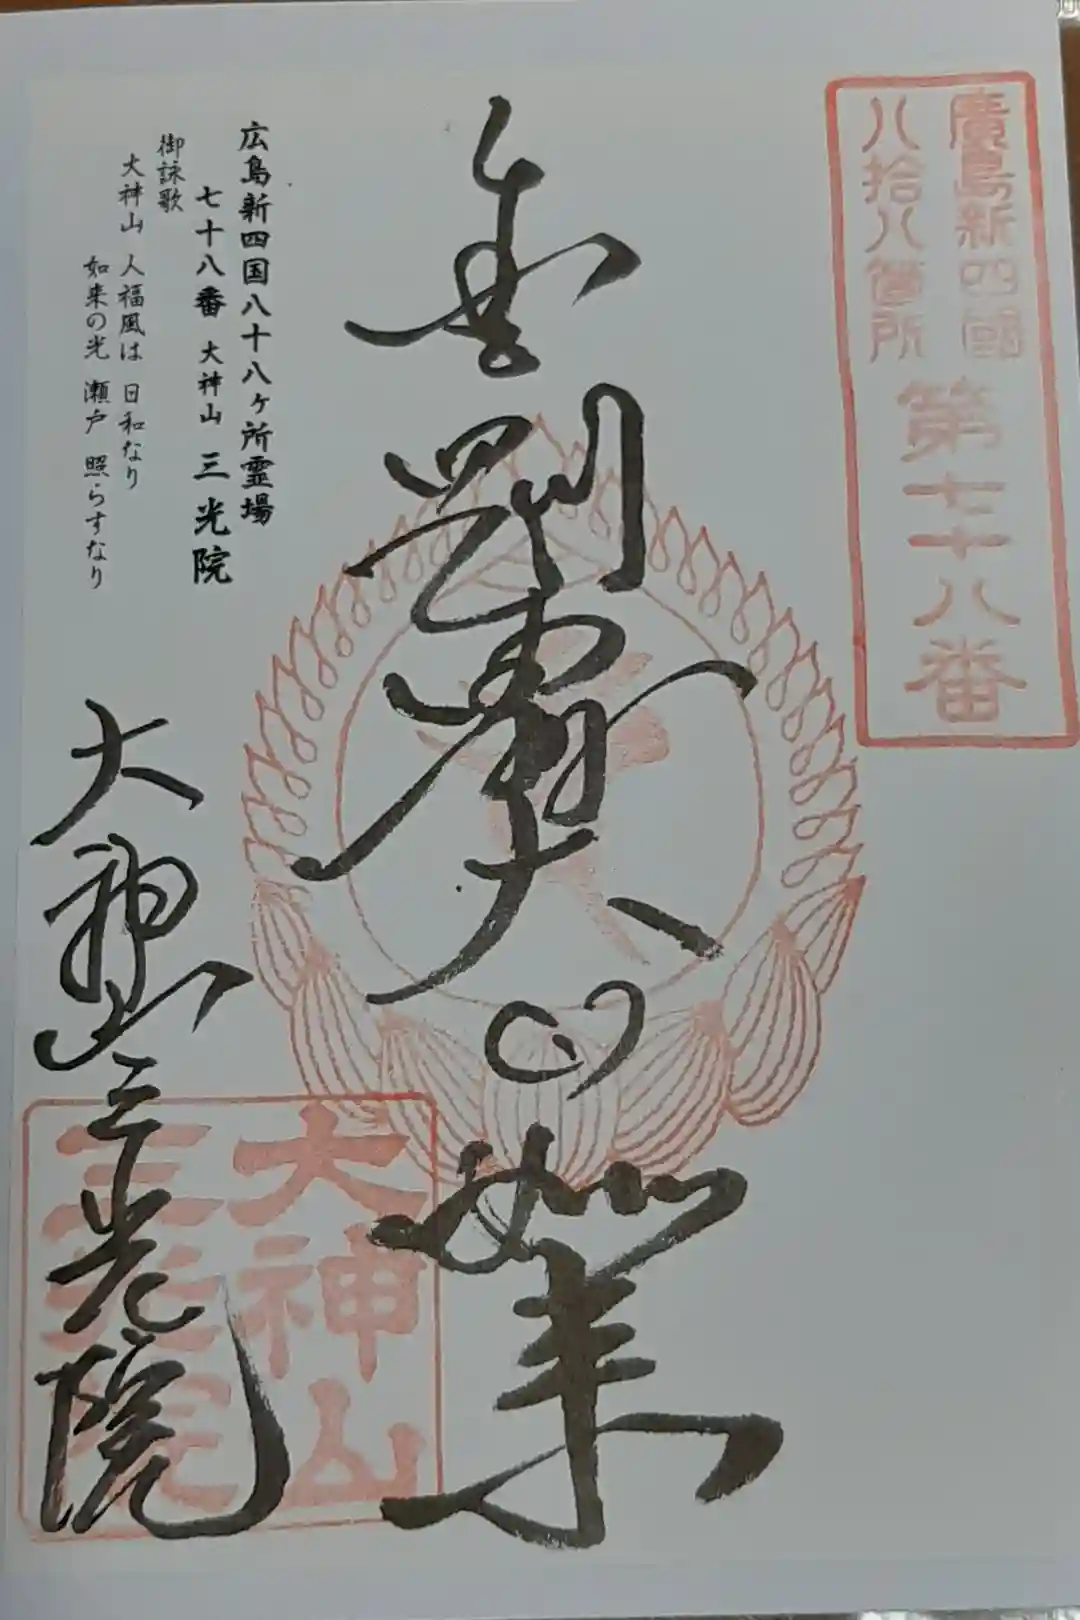 廣島新四國
八拾八箇所
第七十八番
大日如来
広島新四国八十八ヶ所霊場
七十八番 大神山 三光院
御詠歌
大神山 人福風は 日和なり
如来の光 瀬戸 照らすなり
大神山三光院
大神山
三光院